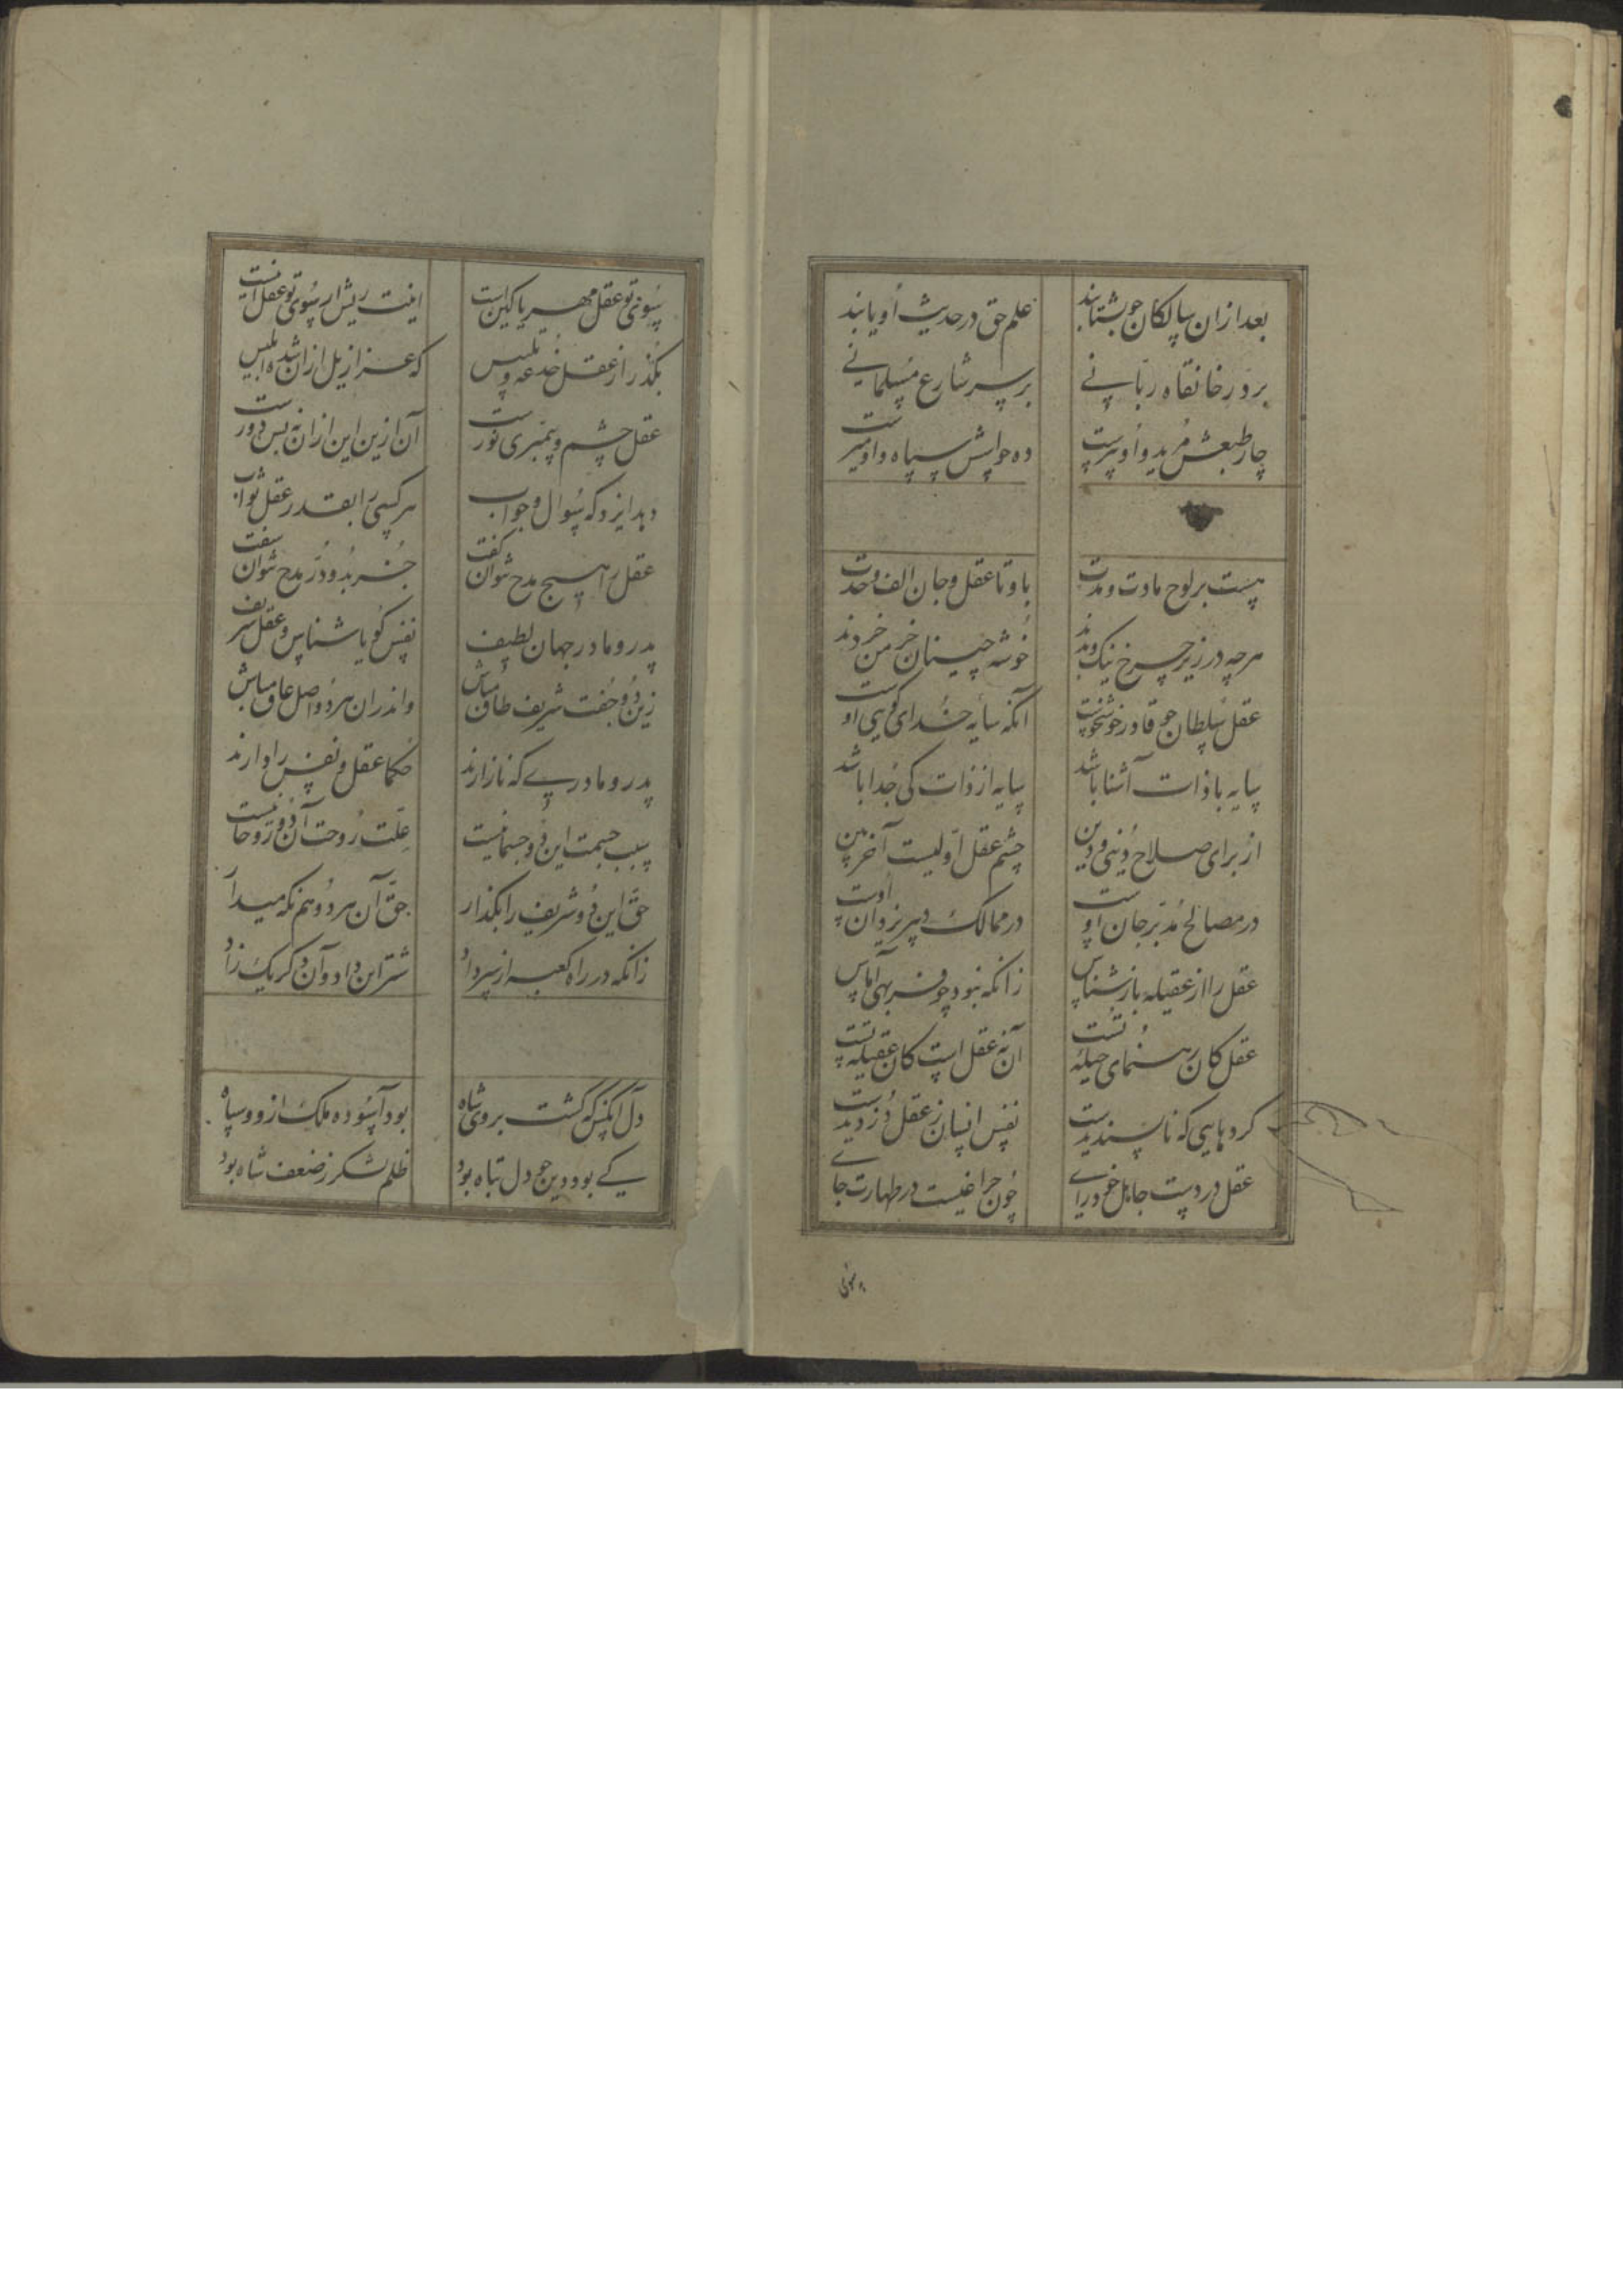 بعد ازان سالکان چو بشتابند علم حق در حدیث او یابند
بر در خانقاه ربانی بر سر شارع مسلمانی
چار طبعش مرید و او پیرست ده حواسش سپاه و او میرست
هست بر لوح مادت و مدت با و تا عقل و جان الف وحدت
هرچه در زیر چرخ نیک و بدند خوشه چینان خرمن خردند
عقل سلطان قادر خوشخوست آنکه سایه خدای گویی اوست
سایه با ذات آشنا باشد سایه از ذات کی جدا باشد
از برای صلاح دنیی و دین چشم عقل اولیست آخربین
در مصالح مدبر جان اوست در ممالک دبیر یزدان اوست
عقل را از عقیله باز شناس زانکه نبود چو فربهی آماس
عقل کان رهنمای حیله تست آن نه عقل است کان عقیله تست
کردهایی که ناپسندیدست نفس انسان ز عقل دزدیدست
عقل در دست جاهل خودرای چون چراغیست در طهارت جای
سوی تو عقل مهر یا کین است اینت ریش ار سوی تو عقل اینست
بگذر از عقل خدعه و تلبیس که عزازیل ازان شد ابلیس
عقل چشم و پیمبری نورست آن ازین این ازان نه بس دورست
دهد ایزد که سوال و جواب هر کسی را بقدر عقل ثواب
عقل را هیچ مدح نتوان گفت جز بدو در مدح نتوان سفت
پدر و مادر جهان لطیف نفس گویا شناس و عقل شریف
زین دو جفت شریف طاق مباش واندران هر دو اصل عاق مباش
پدر و مادری که نازارند حکما عقل و نفس را دارند
سبب جسمت این دو جسمانیست علت روحت آن دو روحانیست
حق این دو شریف را بگذار حق آن هر دو هم نگه میدار
زانکه در راه کعبه از سر داد شتر این داد و آن دگر یک زاد
دل آنکس که گشت بر وی شاه بود آسوده ملک ازو و سپاه
کی بود دین چو دل تباه بود ظلم لشکر ز ضعف شاه بود